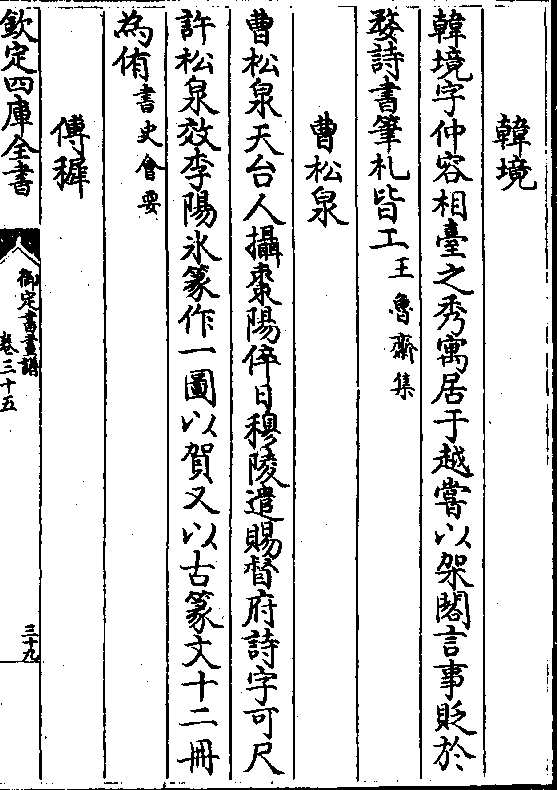 韓境
韓境字仲容相臺之秀寓居于越嘗以架閣言事貶於
婺詩書筆札皆工王魯齋集
曹松泉
曹松泉天台人攝棗陽倅日穆陵遣賜督府詩字可尺
許松泉效李陽氷篆作一圖以賀又以古篆文十二冊
為侑書史會要
傅穉
欽定四庫全書
御定書畫譜
卷三十五
三十九